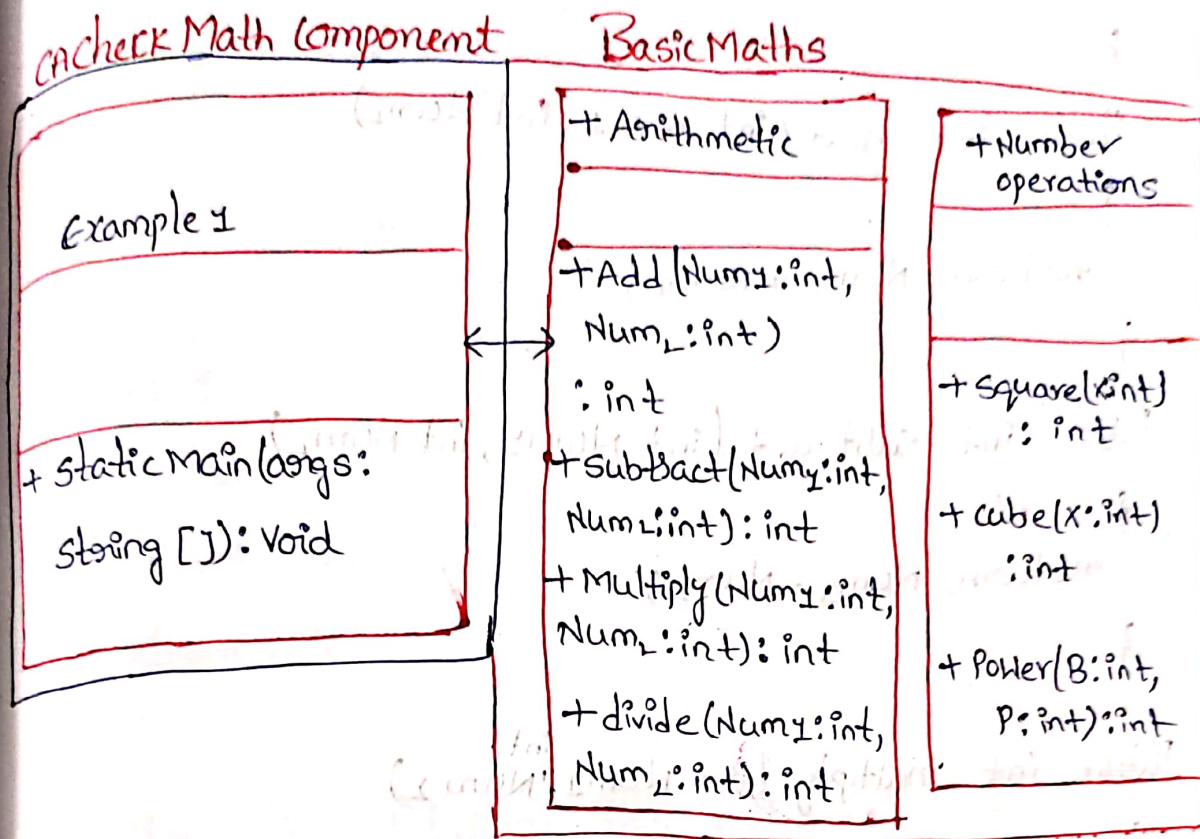 CACheck Math Component
Basic Maths
Example 1
+ static Main (args:
string []): Void
+ Arithmetic
+ Add (Num1:int,
Num2:int)
: int
+ Subtract (Num1:int,
Num2:int): int
+ Multiply (Num1:int,
Num2:int): int
+ divide (Num1:int,
Num2:int): int
+ Number
operations
+ square(x:int)
: int
+ cube(x:int)
: int
+ Power(B:int,
P:int):int